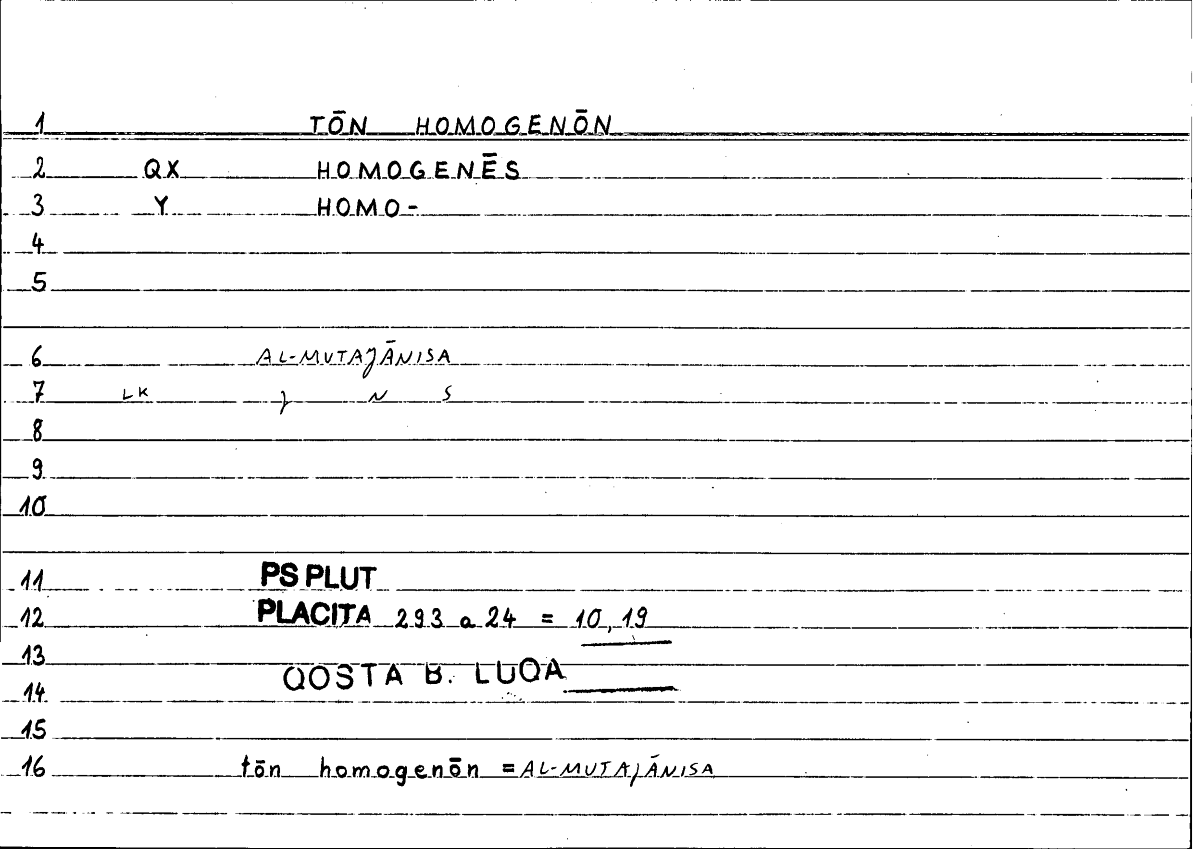 1 TŌN HOMOGENŌN
2 QX HOMOGENĒS
3 Y HOMO-
4
5
6 AL-MUTAJĀNISA
7 LK J N S
8
9
10
11 PS PLUT
12 PLACITA 293 a 24 = 10,19
13
14 QOSTA B. LUQA
15
16 tōn homogenōn = AL-MUTAJĀNISA